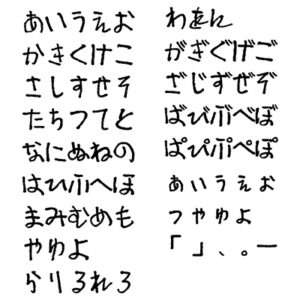 あいうえお
かきくけこ
さしすせそ
たちつてと
なにぬねの
はひふへほ
まみむめも
やゆよ
らりるれろ
わをん
がぎぐげご
ざじずぜぞ
ばびぶべぼ
ぱぴぷぺぽ
ぁぃぅぇぉ
っゃゅょ
「」、。ー